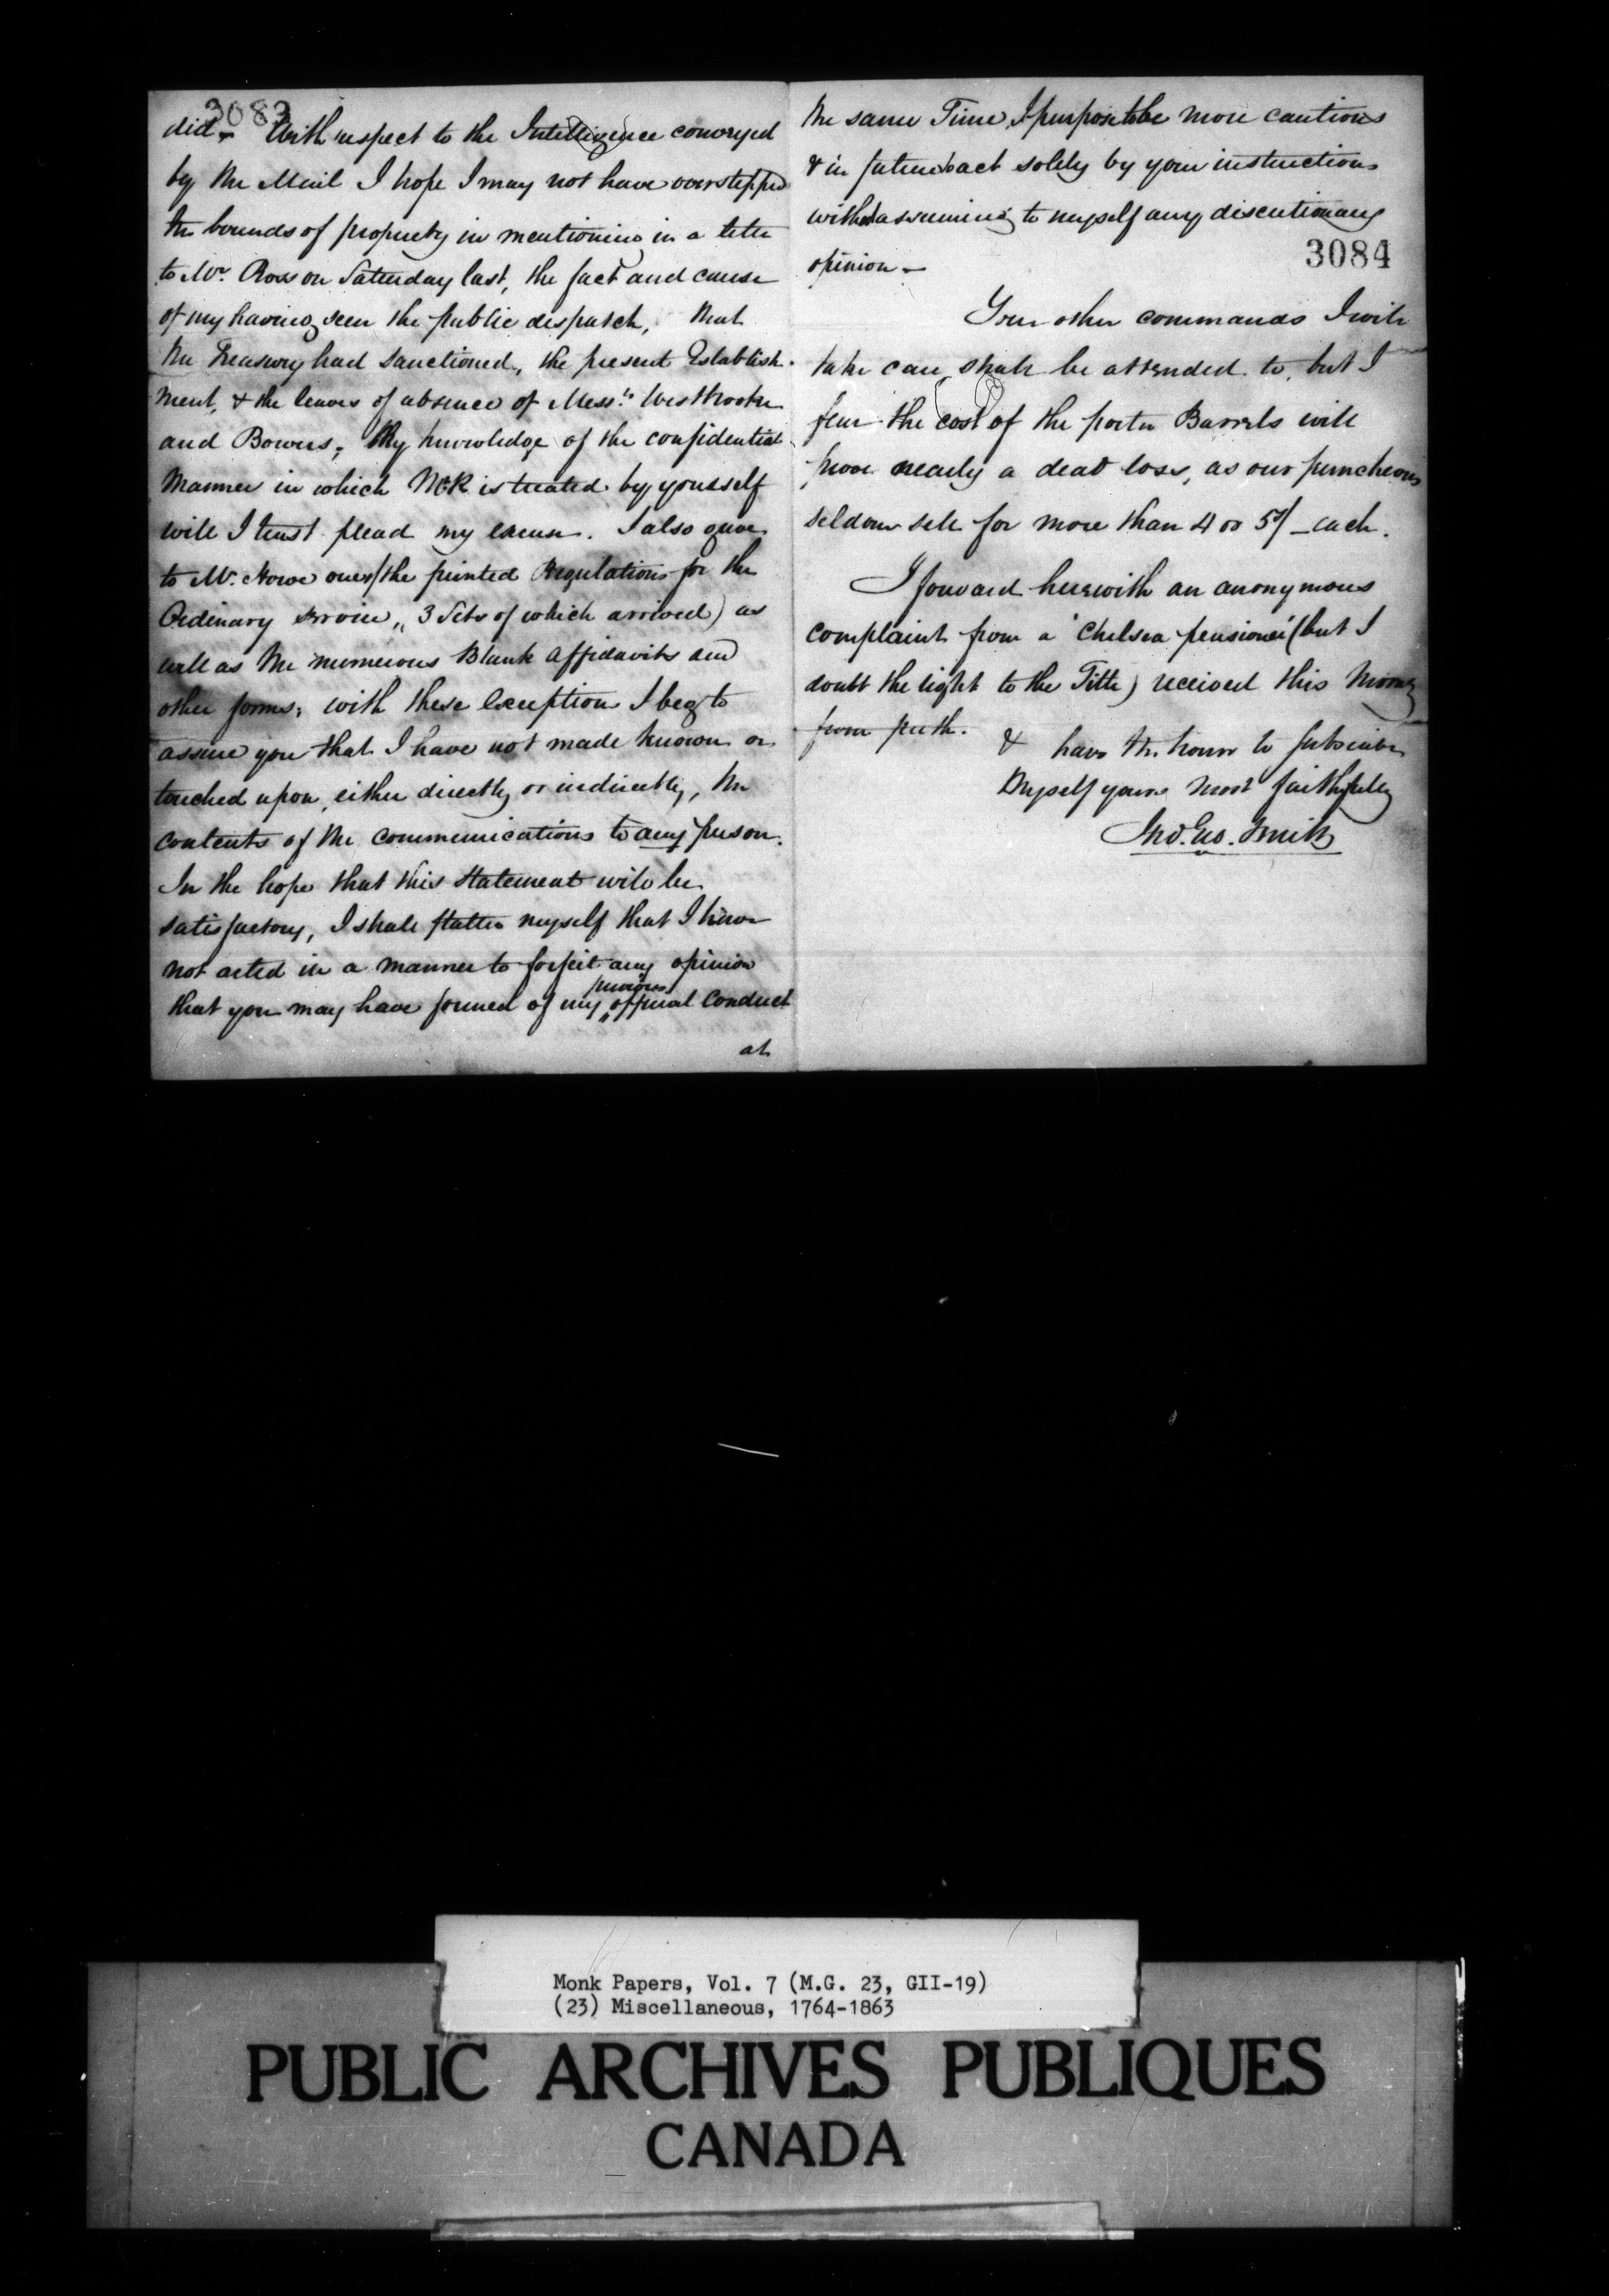 3083
did. With respect to the Intelligence conveyed
by the Mail I hope I may not have overstepped
the bounds of propriety in mentioning in a letter
to Mr. Ross on Saturday last, the fact and cause
of my having seen the public dispatch, that
the Treasury had sanctioned, the present Establish-
ment, & the leaves of absence of Messrs
and Bowers; My knowledge of the confidential
manner in which Mr R is treated by yourself
will I trust plead my excuse. I also gave
to Mr. Howe over (the printed Regulations for the
Ordinary Service, 3 Sets of which arrived) as
well as the numerous Blank affidavits and
other forms; with these exceptions I beg to
assure you that I have not made known or
touched upon, either directly or indirectly, the
contents of the communications to any person.
In the hope that this statement will be
satisfactory, I shall flatter myself that I have
not acted in a manner to forfeit any opinion
previous
that you may have formed of my official Conduct
at
the same Time, I purpose to be more cautious
& in future to act solely by your instructions
without assuming to myself any discretionary
3084
opinion—
Your other commands I will
take care shall be attended to, but I
fear the cost of the porter Barrels will
prove nearly a dead loss, as our puncheons
seldom sell for more than 4 or 5/- each.
I forward herewith an anonymous
complaint from a 'Chelsea pensioner' (but I
doubt the right to the Title) received this Morng
from Perth.
& have the honor to subscribe
Myself yours most faithfully
Jno. Geo. Smith
Monk Papers, Vol. 7 (M.G. 23, GII-19)
(23) Miscellaneous, 1764-1863
PUBLIC ARCHIVES PUBLIQUES
CANADA